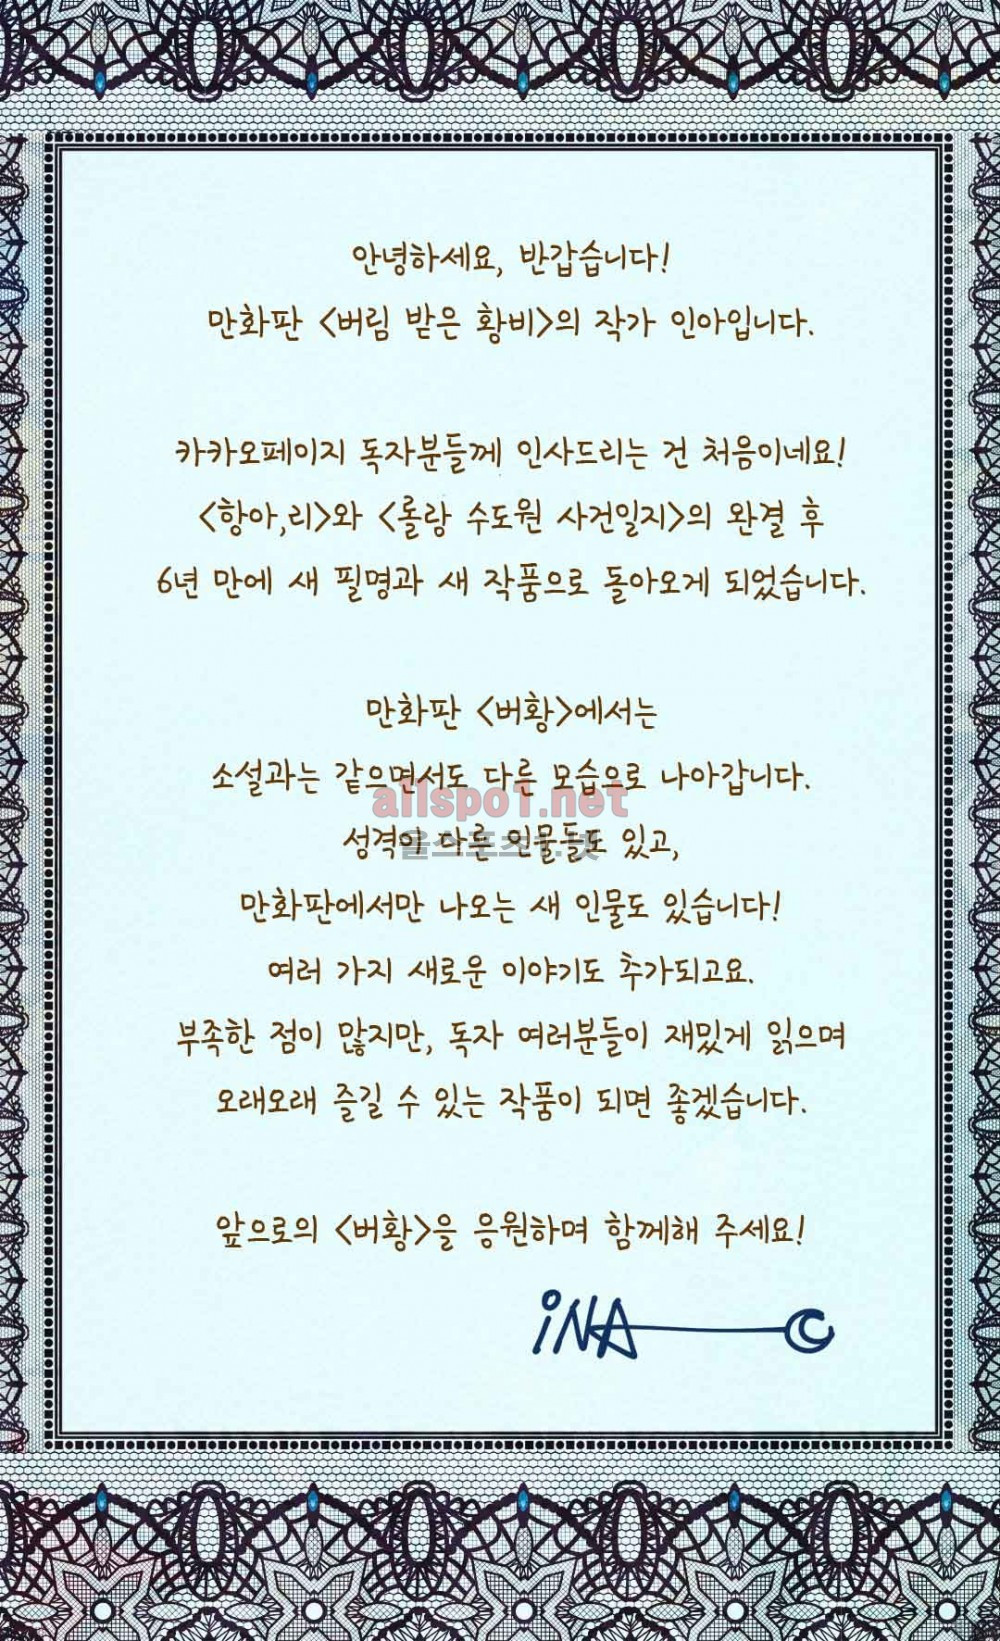 안녕하세요, 반갑습니다!
만화판 <버림 받은 황비>의 작가 인아입니다.
카카오페이지 독자분들께 인사드리는 건 처음이네요!
<항아,리>와 <롤랑 수도원 사건일지>의 완결 후
6년 만에 새 필명과 새 작품으로 돌아오게 되었습니다.
만화판 <버황>에서는
소설과는 같으면서도 다른 모습으로 나아갑니다.
allspo1.net
성격이 다른 인물들도 있고,
올스포츠1.넷
만화판에서만 나오는 새 인물도 있습니다!
여러 가지 새로운 이야기도 추가되고요.
부족한 점이 많지만, 독자 여러분들이 재밌게 읽으며
오래오래 즐길 수 있는 작품이 되면 좋겠습니다.
앞으로의 <버황>을 응원하며 함께해 주세요!
iNA